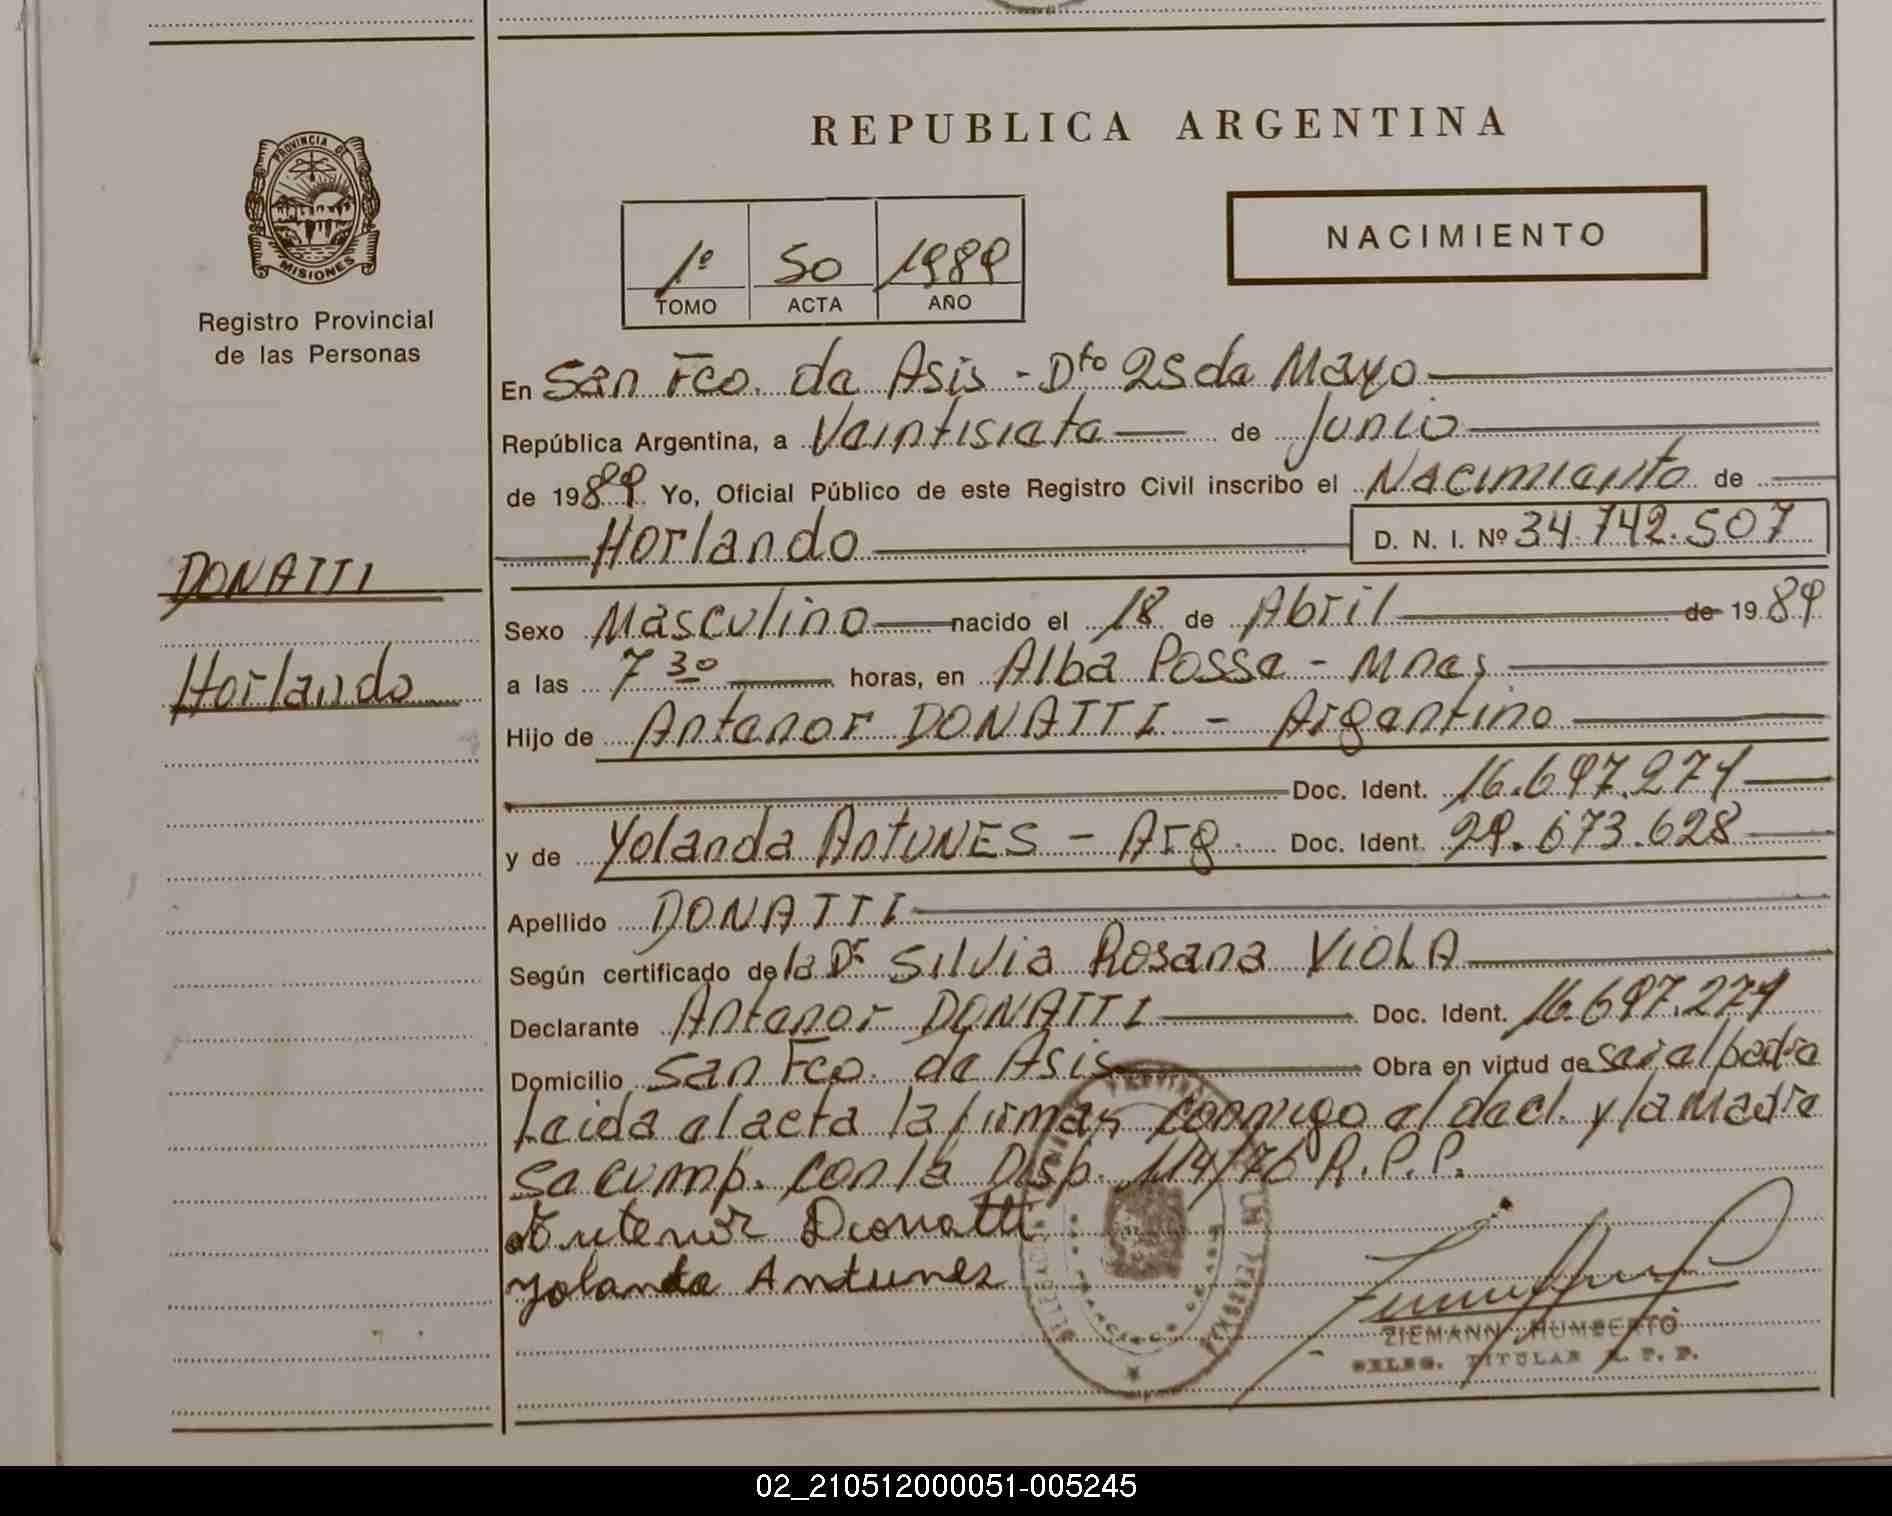 REPUBLICA ARGENTINA
PROVINCIA DE
MISIONES
Registro Provincial
de las Personas
1º 50 1989
TOMO ACTA AÑO
NACIMIENTO
En San Fco. de Asis - Dto 25 de Mayo
República Argentina, a Veintisiete de Junio
de 1989 Yo, Oficial Público de este Registro Civil inscribo el Nacimiento de
Horlando D. N. I. Nº 34.742.507
DONATTI
Horlando
Sexo Masculino nacido el 18 de Abril de 1989
a las 7 30 horas, en Alba Posse - Mnes
Hijo de Antenor DONATTI - Argentino
Doc. Ident. 16.697.271
y de Yolanda AntUNES - Arg. Doc. Ident. 29.673.628
Apellido DONATTI
Según certificado de la Dr. Silvia Rosana VIOLA
Declarante Antenor DONATTI Doc. Ident. 16.697.271
Domicilio San Fco. de Asis Obra en virtud de ser el padre
Leida el acta la firman conmigo el decl. y la Madre
se cump. con la Disp. 114/76 R.P.P.
Antenor Donatti
Yolanda Antunes
ZIEMANN HUMBERTO
DELEG. TITULAR R. P. P.
02_210512000051-005245